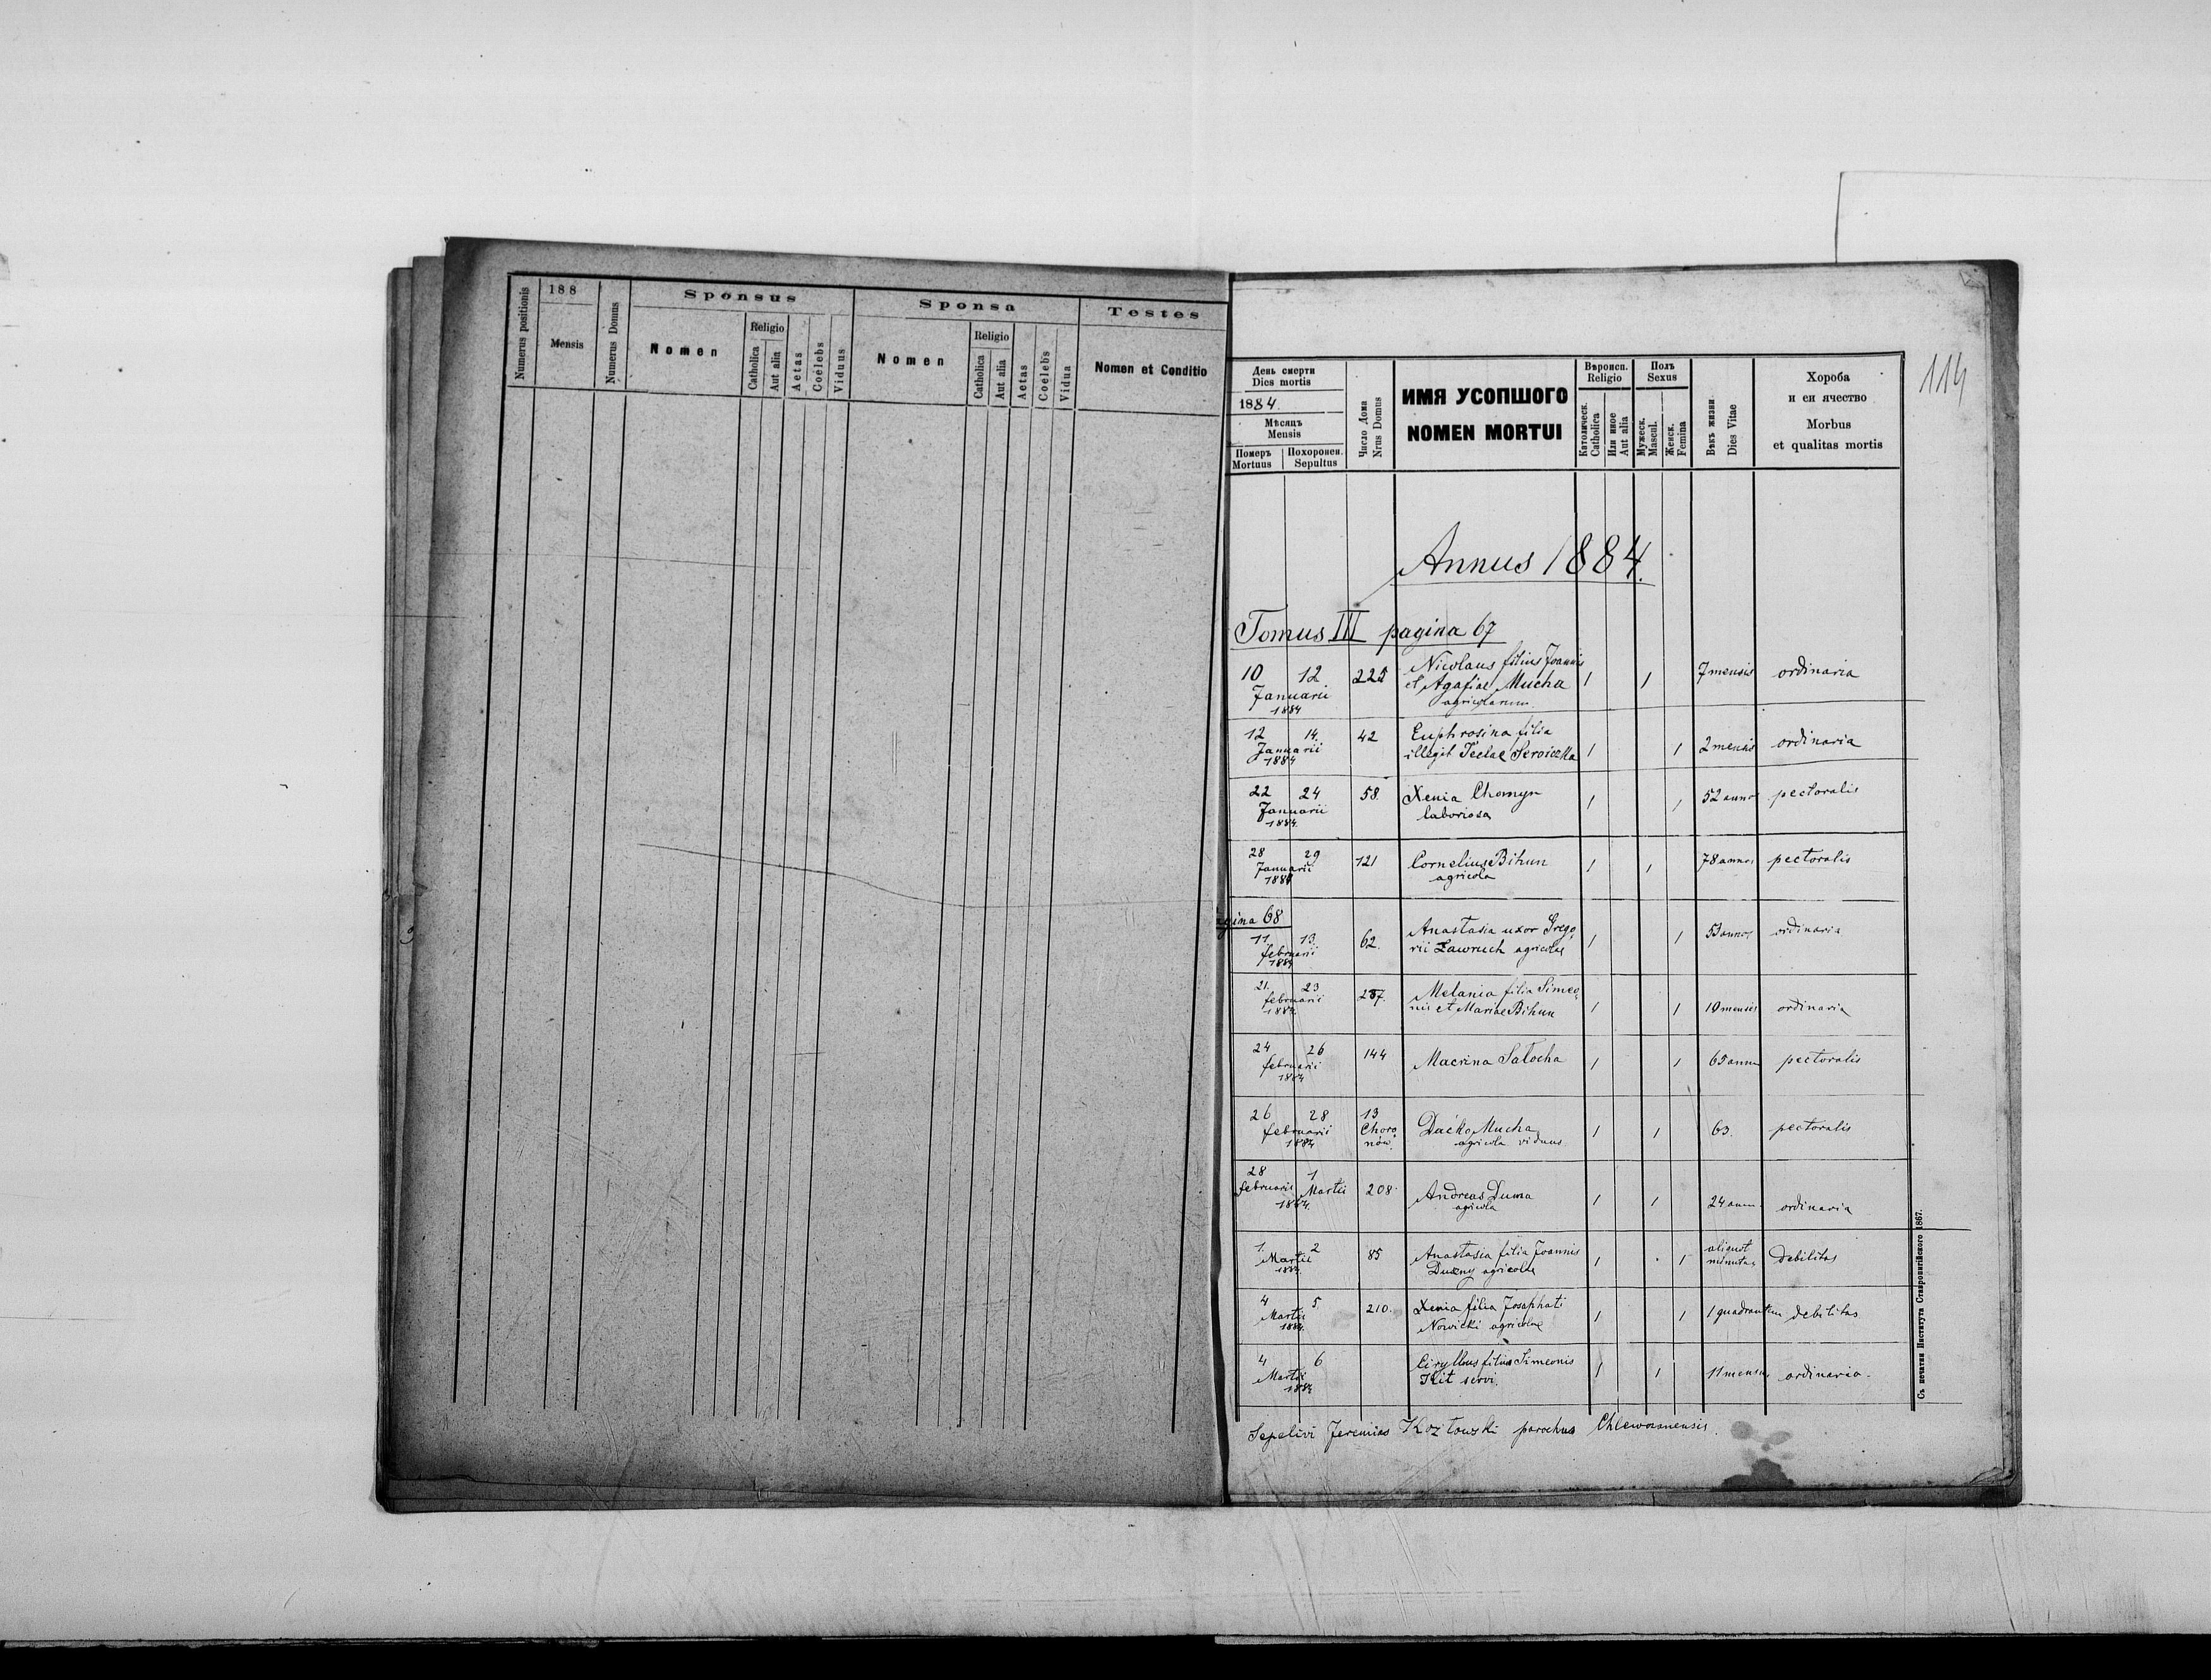 Numerus positionis
188
Mensis
Numerus Domus
Sponsus
Nomen
Religio
Catholica
Aut alia
Aetas
Coelebs
Viduus
Sponsa
Nomen
Religio
Catholica
Aut alia
Aetas
Coelebs
Vidua
Testes
Nomen et Conditio
114
День смерти
Dies mortis
1884.
Мѣсяцъ
Mensis
Померъ
Mortuus
Похоронен.
Sepultus
Число Дома
Nrus Domus
ИМЯ УСОПШОГО
NOMEN MORTUI
Вѣроисп.
Religio
Католическ.
Catholica
Или иное
Aut alia
Полъ
Sexus
Мужеск.
Mascul.
Женск.
Femina
Вѣкъ жизни
Dies Vitae
Хороба
и еи ячество
Morbus
et qualitas mortis
Annus 1884.
Tomus III pagina 67
10 12 225 Nicolaus filius Joannis 7 mensis ordinaria
Januarii et Agafiae Mucha / /
1884 agricolarum.
12 14 42 Euphrosina filia
Januarii illegit Teclae / / 2 mensis ordinaria
1884
22 24 58. Xenia Chomyn / / 52 annos pectoralis
Januarii laboriosa
1884.
28 29 121 Cornelius Bihun / / 78 annos pectoralis
Januarii agricola
1884
pagina 68
11 13 62. Anastasia uxor Grego / / 53 annos ordinaria
februarii rii Ławruch agricolae
1884
21. 23 237. Melania filia Simeo
februarii nis et Mariae Bihun / / 10 mensis ordinaria
1884
24 26 144 Macrina Sałocha / / 65 annos pectoralis
februarii
1884
26 28 13 Daćko Mucha / / 63. pectoralis
februarii Choro agricola viduus
1884 nów.
28 1 208. Andreas Duma / / 24 ann. ordinaria
februarii Martii agricola
1884.
1 2 85 Anastasia filia Joannis / / aliquot debilitas
Martii agricolae minutas
1884.
4 5 210. Xenia filia Josaphati / / 1 quadrantem debilitas
Martii Nowicki agricolae
1884.
4 6 Cyryllus filius Simeonis / / 11 mensis ordinaria.
Martii Kit servi.
1884
Sepelivi Jeremias Kozłowski parochus
Съ печатни Института Ставропигійского 1867.